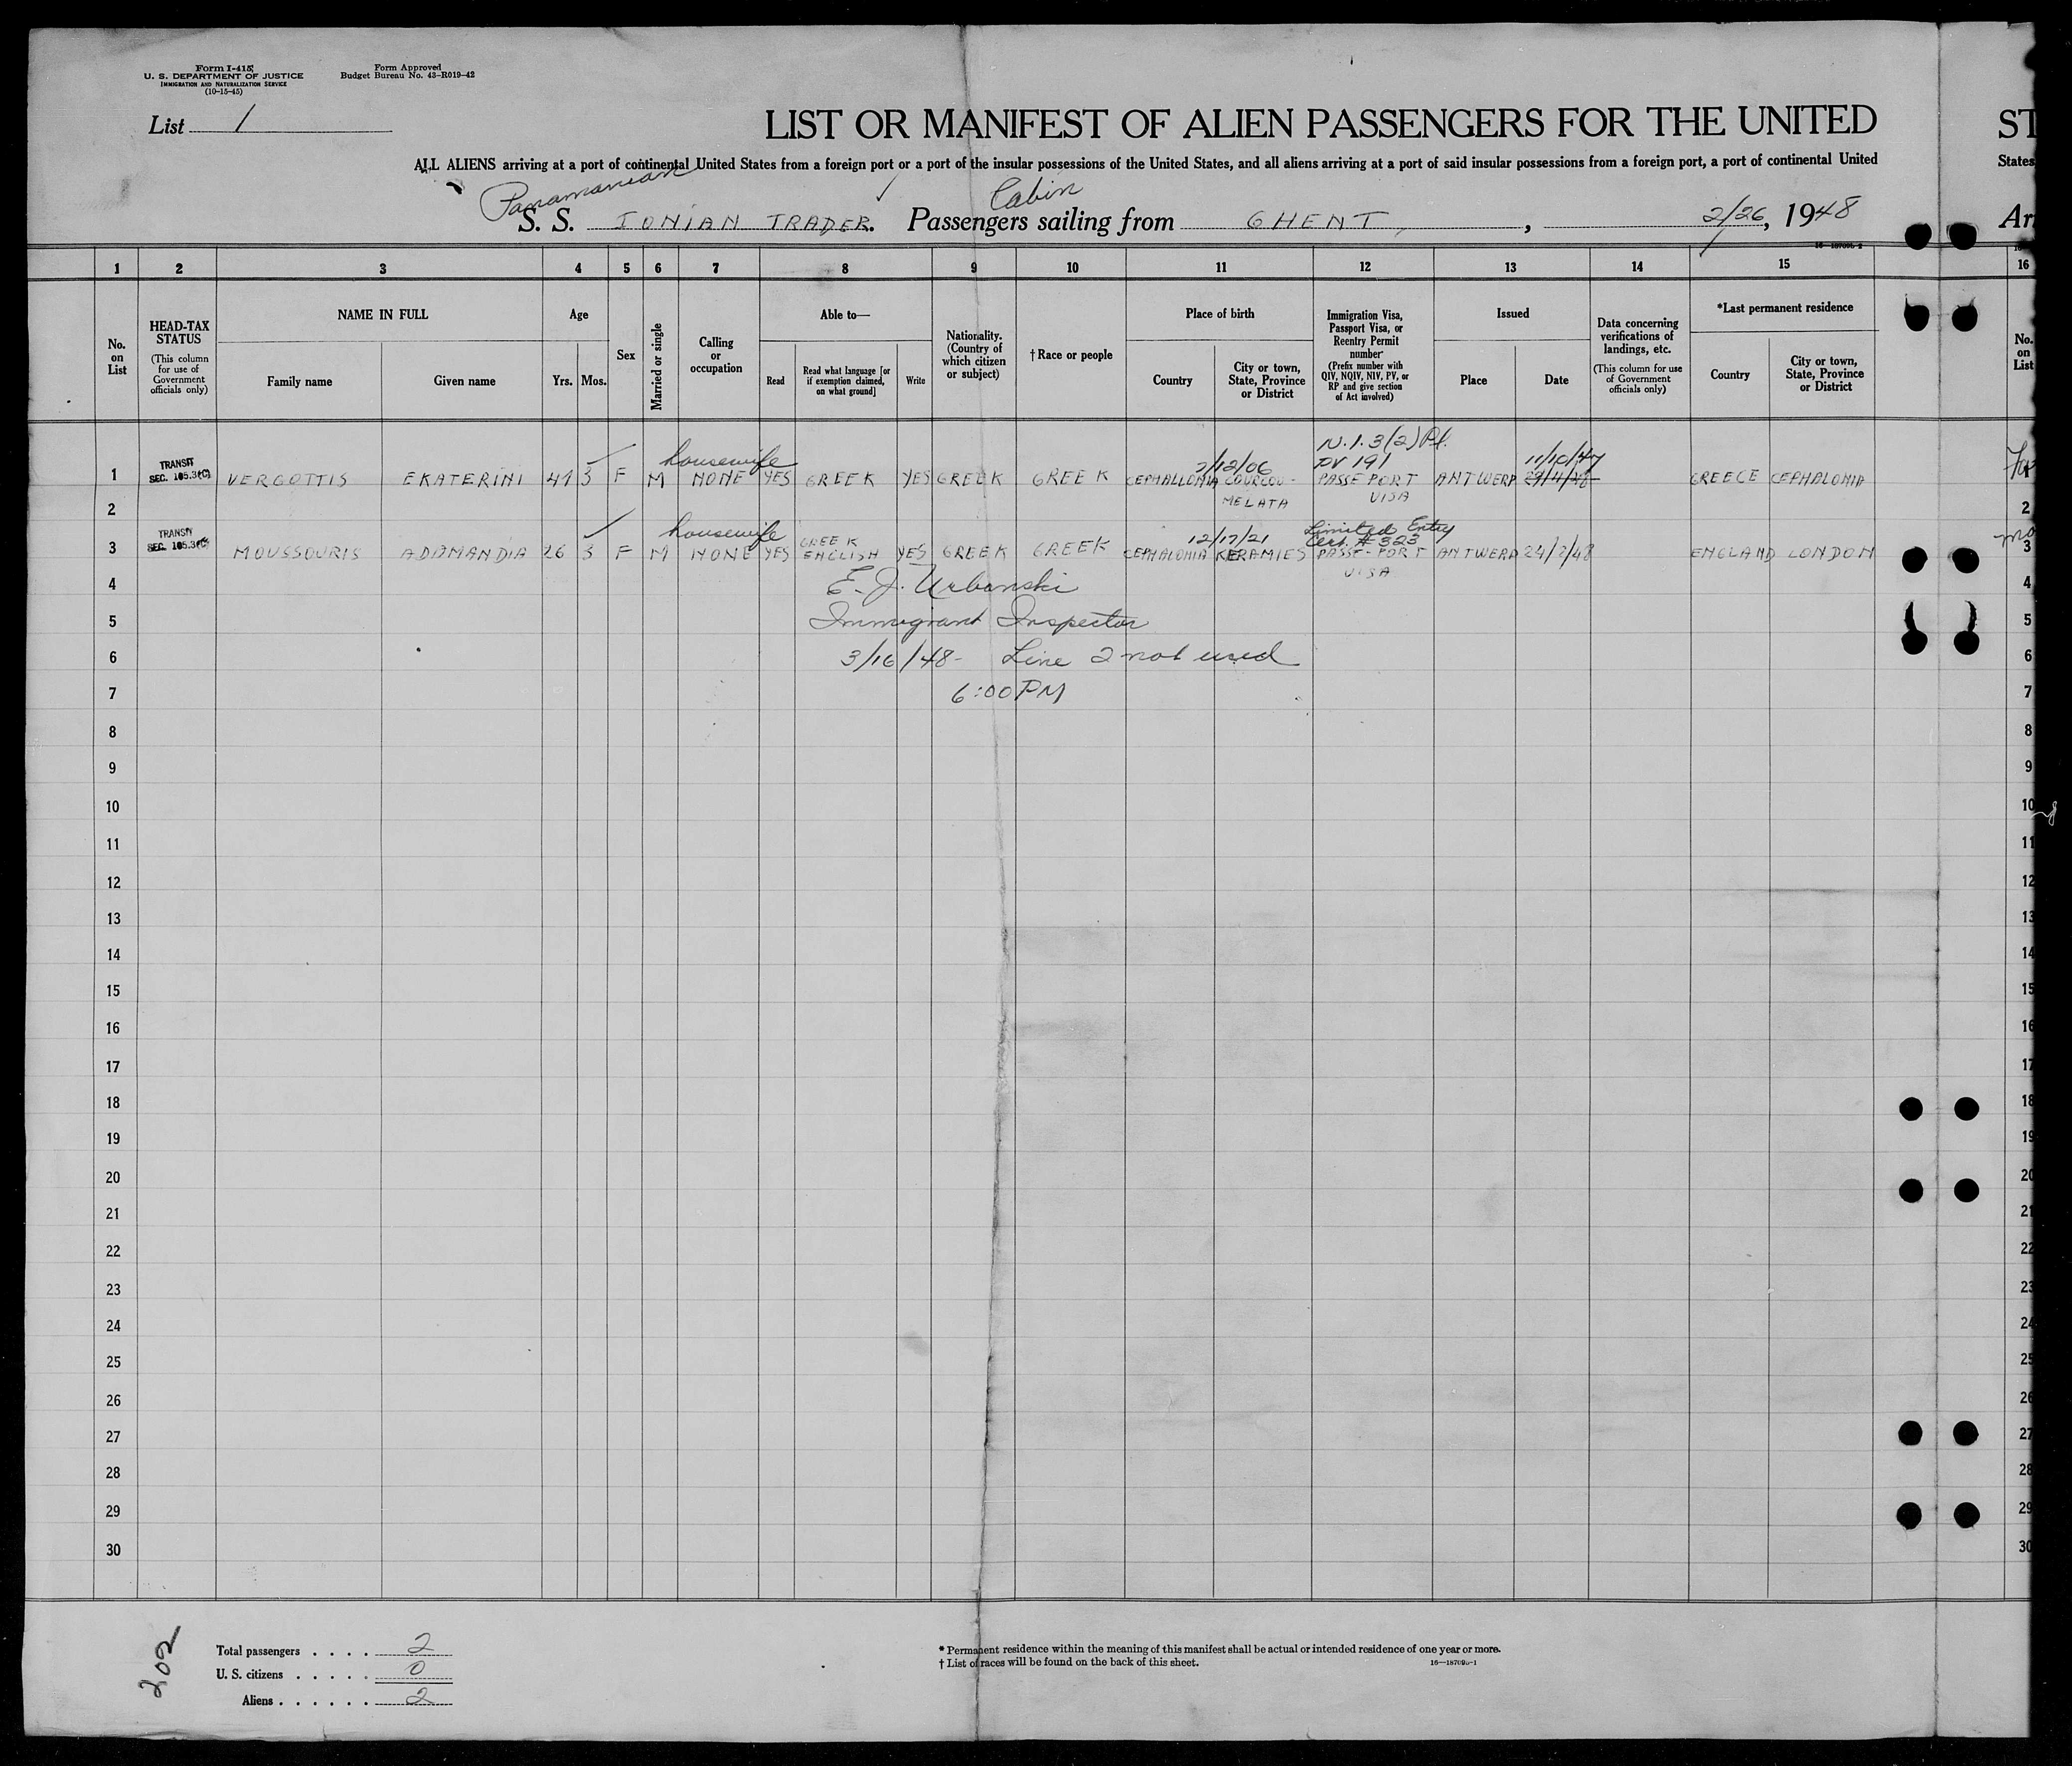 Form I-415
U. S. DEPARTMENT OF JUSTICE
IMMIGRATION AND NATURALIZATION SERVICE
(10-15-45)
Form Approved
Budget Bureau No. 43-R019-42
List 1
LIST OR MANIFEST OF ALIEN PASSENGERS FOR THE UNITED ST
ALL ALIENS arriving at a port of continental United States from a foreign port or a port of the insular possessions of the United States, and all aliens arriving at a port of said insular possessions from a foreign port, a port of continental United States
Panamanian Cabin
S. S. IONIAN TRADER. Passengers sailing from GHENT, 2/26, 1948 Ar
16-18709b-2
1 2 3 4 5 6 7 8 9 10 11 12 13 14 15 16
No. on List
HEAD-TAX STATUS
(This column for use of Government officials only)
NAME IN FULL
Family name Given name
Age
Yrs. Mos.
Sex
Married or single
Calling or occupation
Able to—
Read
Read what language [or if exemption claimed, on what ground]
Write
Nationality. (Country of which citizen or subject)
† Race or people
Place of birth
Country
City or town, State, Province or District
Immigration Visa, Passport Visa, or Reentry Permit number
(Prefix number with QIV, NQIV, NIV, PV, or RP and give section of Act involved)
Issued
Place Date
Data concerning verifications of landings, etc.
(This column for use of Government officials only)
*Last permanent residence
Country
City or town, State, Province or District
No. on List
N.I. 3(2) Pf.
housewife 2/12/06 PV 191 11/10/47
1 TRANSIT SEC. 105.3(C) VERGOTTIS EKATERINI 41 3 F M NONE YES GREEK YES GREEK GREEK CEPHALLONIA COURCOU- PASSE PORT ANTWERP GREECE CEPHALONIA
2 MELATA VISA 2
housewife GREEK 12/17/21 Limited Entry Cert. # 323
3 TRANSIT SEC. 105.3(C) MOUSSOURIS ADAMANDIA 26 3 F M NONE YES ENGLISH YES GREEK GREEK CEPHALONIA KERAMIES PASSE-PORT ANTWERP 24/2/48 ENGLAND LONDON 3
VISA
4 E. J. Urbanski 4
5 Immigrant Inspector 5
6 3/16/48- Line 2 not used 6
7 6:00 PM 7
8 8
9 9
10 10
11 11
12 12
13 13
14 14
15 15
16 16
17 17
18 18
19 19
20 20
21 21
22 22
23 23
24 24
25 25
26 26
27 27
28 28
29 29
30 30
202
Total passengers . . . . 2
U. S. citizens . . . . . 0
Aliens . . . . . . 2
* Permanent residence within the meaning of this manifest shall be actual or intended residence of one year or more.
† List of races will be found on the back of this sheet.
16—18709b-1